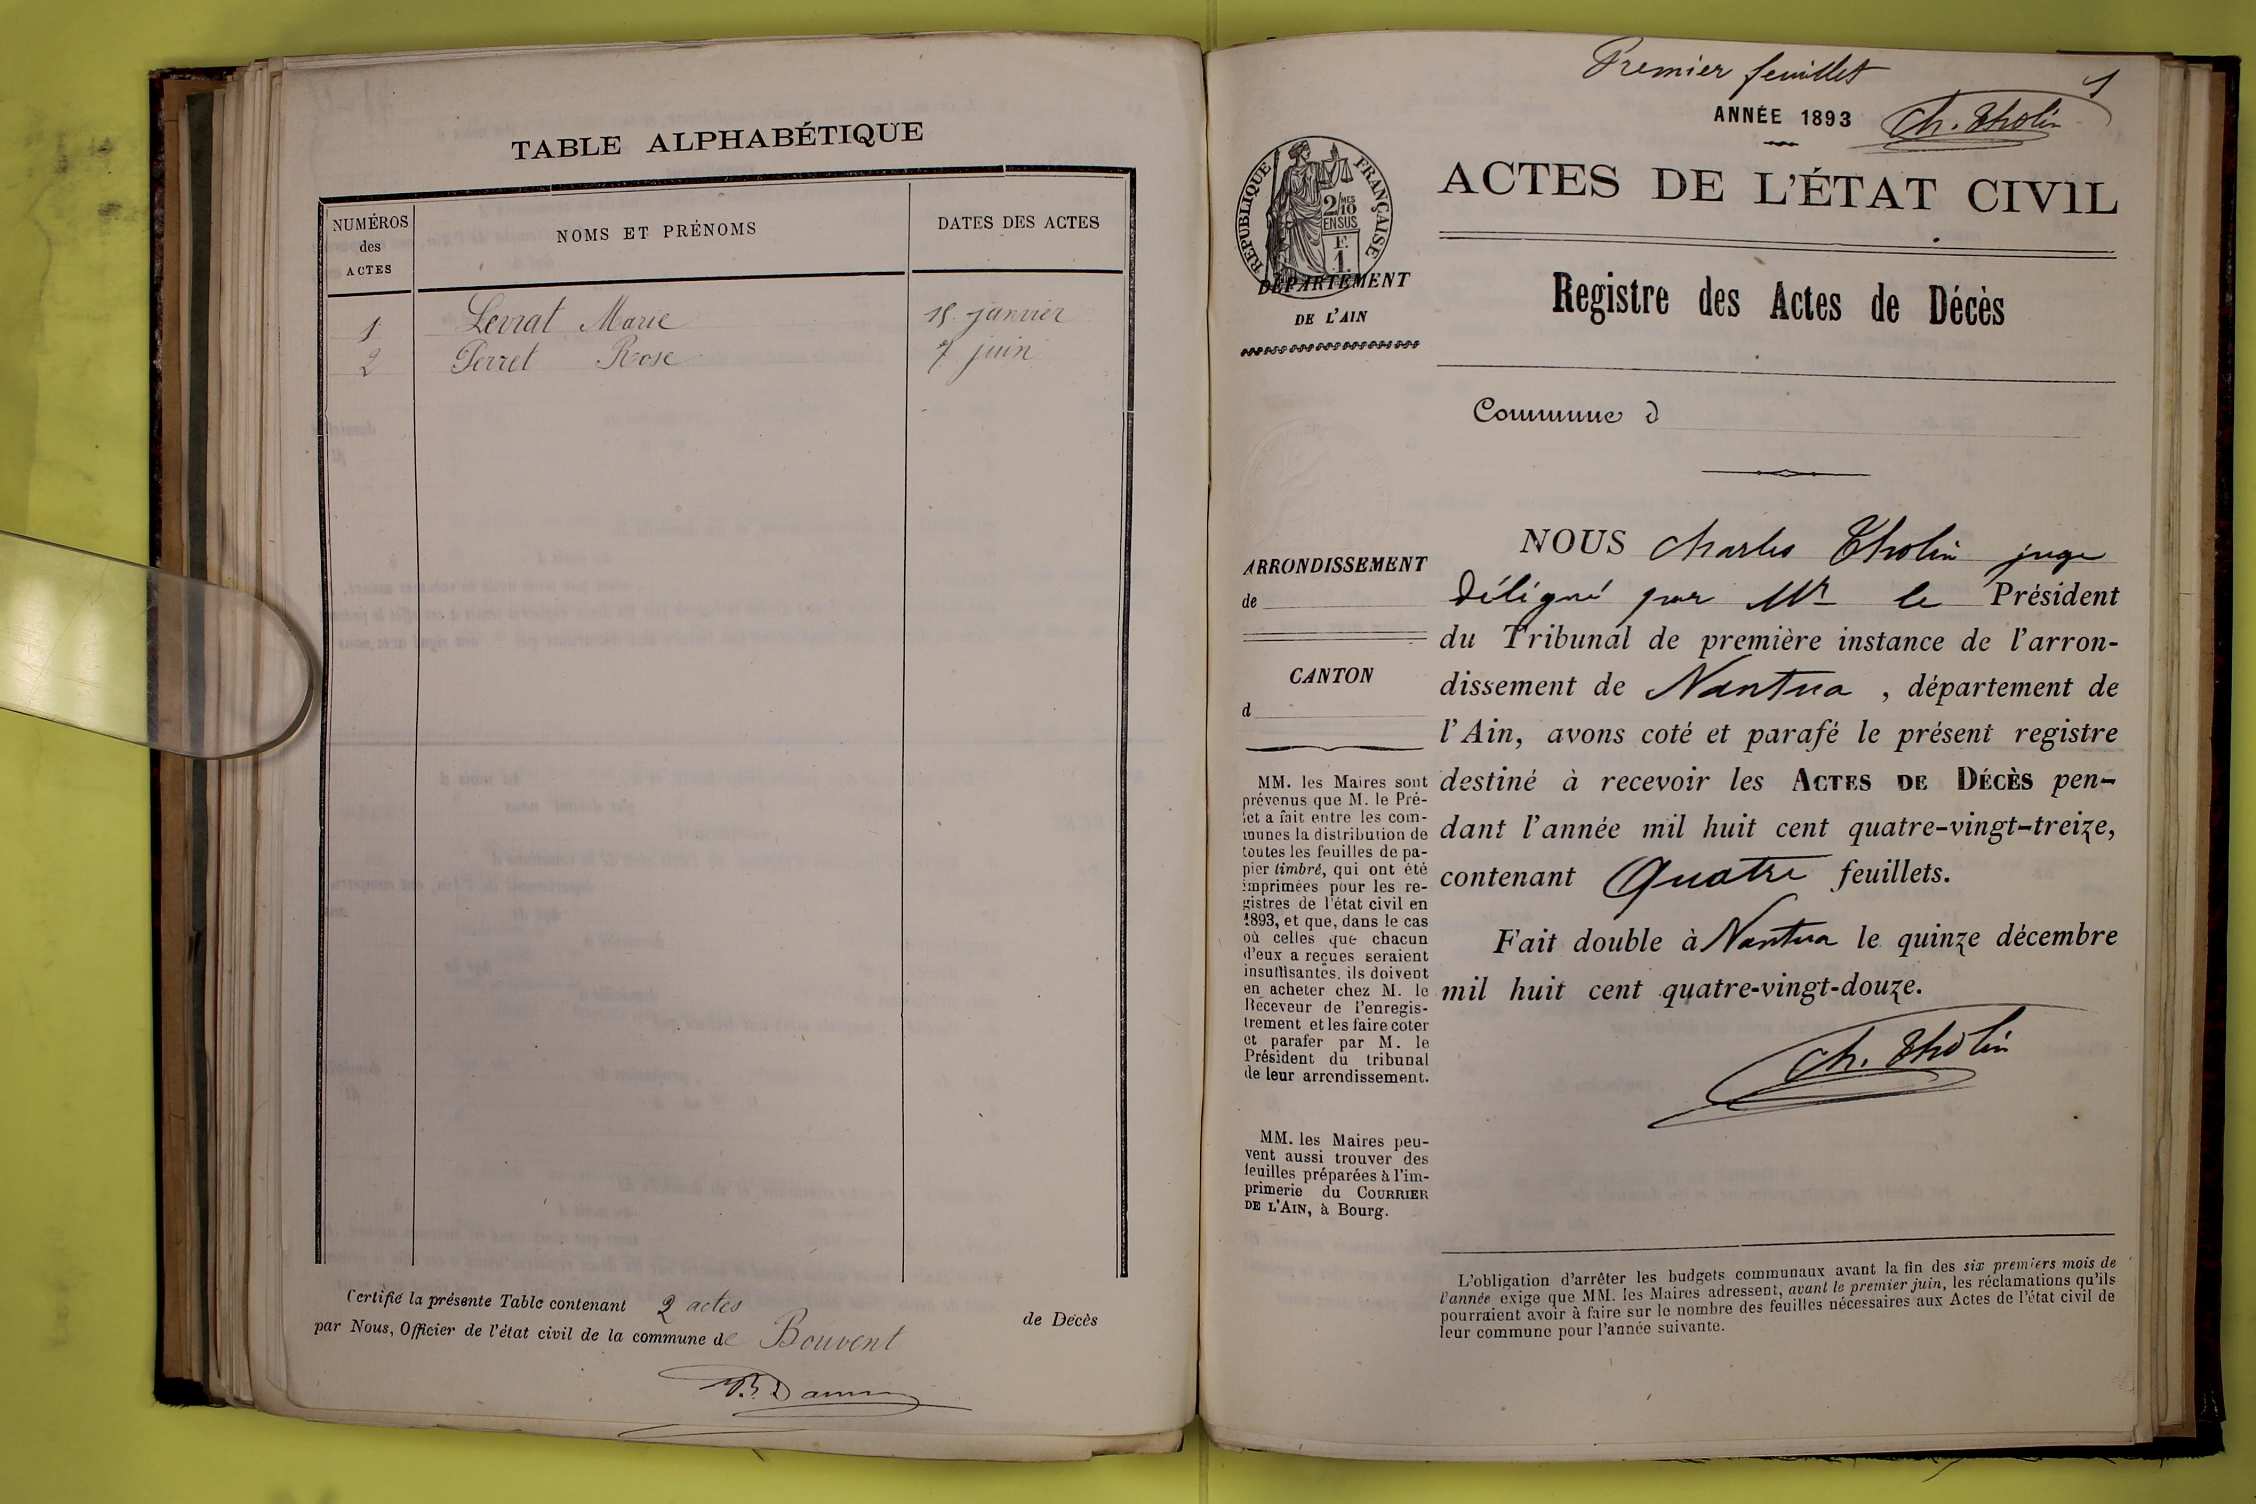 TABLE ALPHABÉTIQUE
NUMÉROS
des
ACTES
NOMS ET PRÉNOMS
DATES DES ACTES
1 Levrat Marie 15 janvier
2 Perret Rose 7 juin
Certifié la présente Table contenant 2 actes de Décès
par Nous, Officier de l'état civil de la commune de Bouvent
Premier feuillet 1
ANNÉE 1893 Ch. Tholin
RÉPUBLIQUE FRANÇAISE
2/10 MES
EN SUS
F.
1.
DÉPARTEMENT
DE L'AIN
ACTES DE L'ÉTAT CIVIL
Registre des Actes de Décès
Commune d
ARRONDISSEMENT
de
CANTON
d
MM. les Maires sont
prévenus que M. le Pré-
fet a fait entre les com-
munes la distribution de
toutes les feuilles de pa-
pier timbré, qui ont été
imprimées pour les re-
gistres de l'état civil en
1893, et que, dans le cas
où celles que chacun
d'eux a reçues seraient
insuffisantes, ils doivent
en acheter chez M. le
Receveur de l'enregis-
trement et les faire coter
et parafer par M. le
Président du tribunal
de leur arrondissement.
MM. les Maires peu-
vent aussi trouver des
feuilles préparées à l'im-
primerie du COURRIER
DE L'AIN, à Bourg.
NOUS Charles Tholin juge
Délégué par Mr le Président
du Tribunal de première instance de l'arron-
dissement de Nantua, département de
l'Ain, avons coté et parafé le présent registre
destiné à recevoir les ACTES DE DÉCÈS pen-
dant l'année mil huit cent quatre-vingt-treize,
contenant Quatre feuillets.
Fait double à Nantua le quinze décembre
mil huit cent quatre-vingt-douze.
Ch. Tholin
L'obligation d'arrêter les budgets communaux avant la fin des six premiers mois de
l'année exige que MM. les Maires adressent, avant le premier juin, les réclamations qu'ils
pourraient avoir à faire sur le nombre des feuilles nécessaires aux Actes de l'état civil de
leur commune pour l'année suivante.